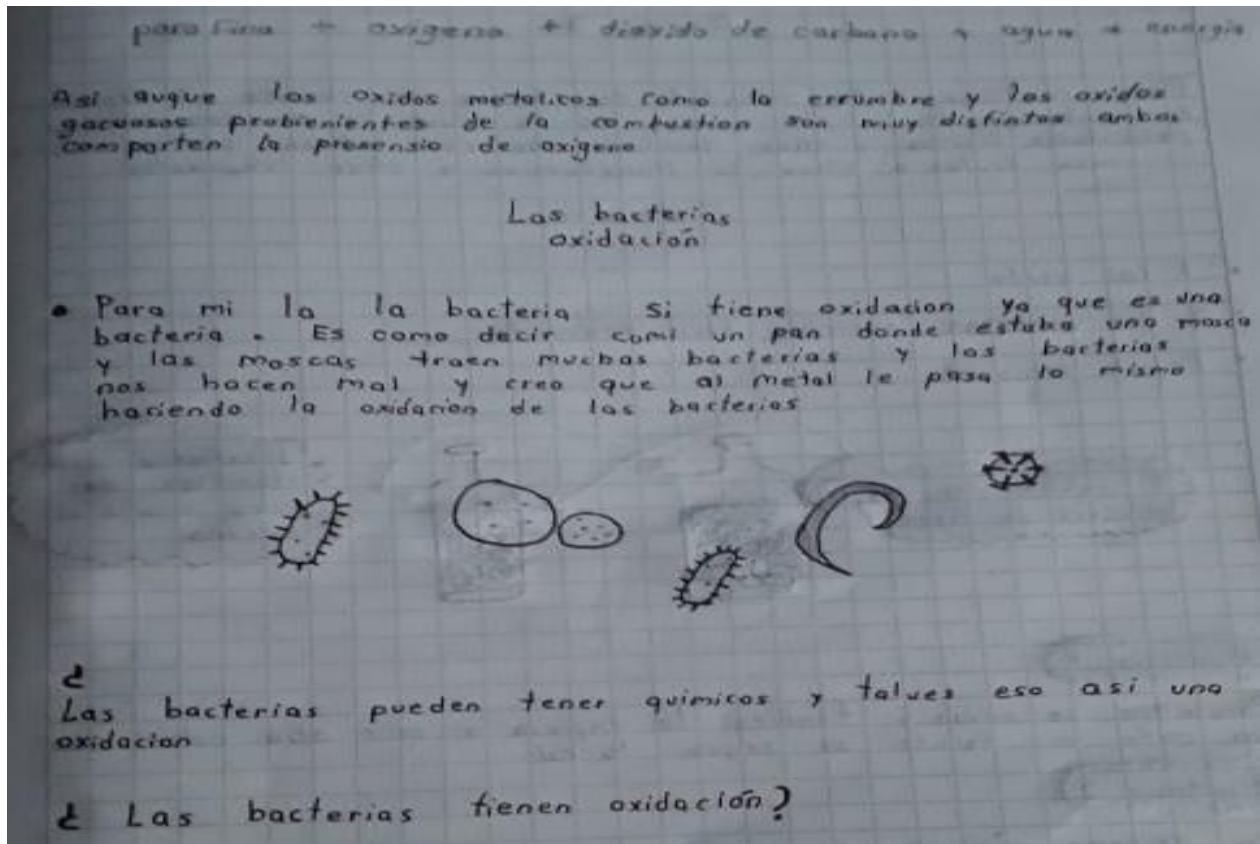 parafina + oxigeno + dioxido de carbano + agua + energia
Asi auque los oxidos metalicos como la errumbre y los oxidos
gacuosos probienientes de la combustion son muy distintos ambos
comparten la presensio de oxigeno
Las bacterias
oxidación
• Para mi la la bacteria si tiene oxidacion ya que es una
bacteria. Es como decir comi un pan donde estuba una mosca
y las moscas traen muchas bacterias y las bacterias
nos hacen mal y creo que al metal le pasa lo mismo
haciendo la oxidacion de las bacterias
¿
Las bacterias pueden tener quimicos y talves eso asi una
oxidacion
¿ Las bacterias tienen oxidación?